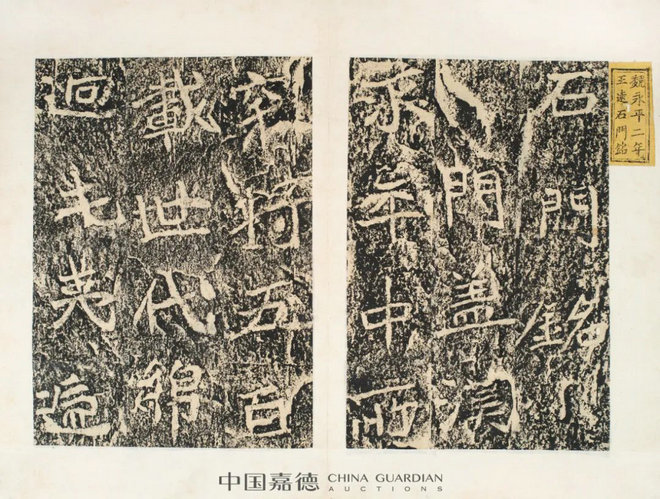 魏永平二年
王遠石門銘
石門銘
門盖漢
永平中所
穿將五百
載世代綿
迴屯夷遞
中国嘉德 CHINA GUARDIAN
AUCTIONS